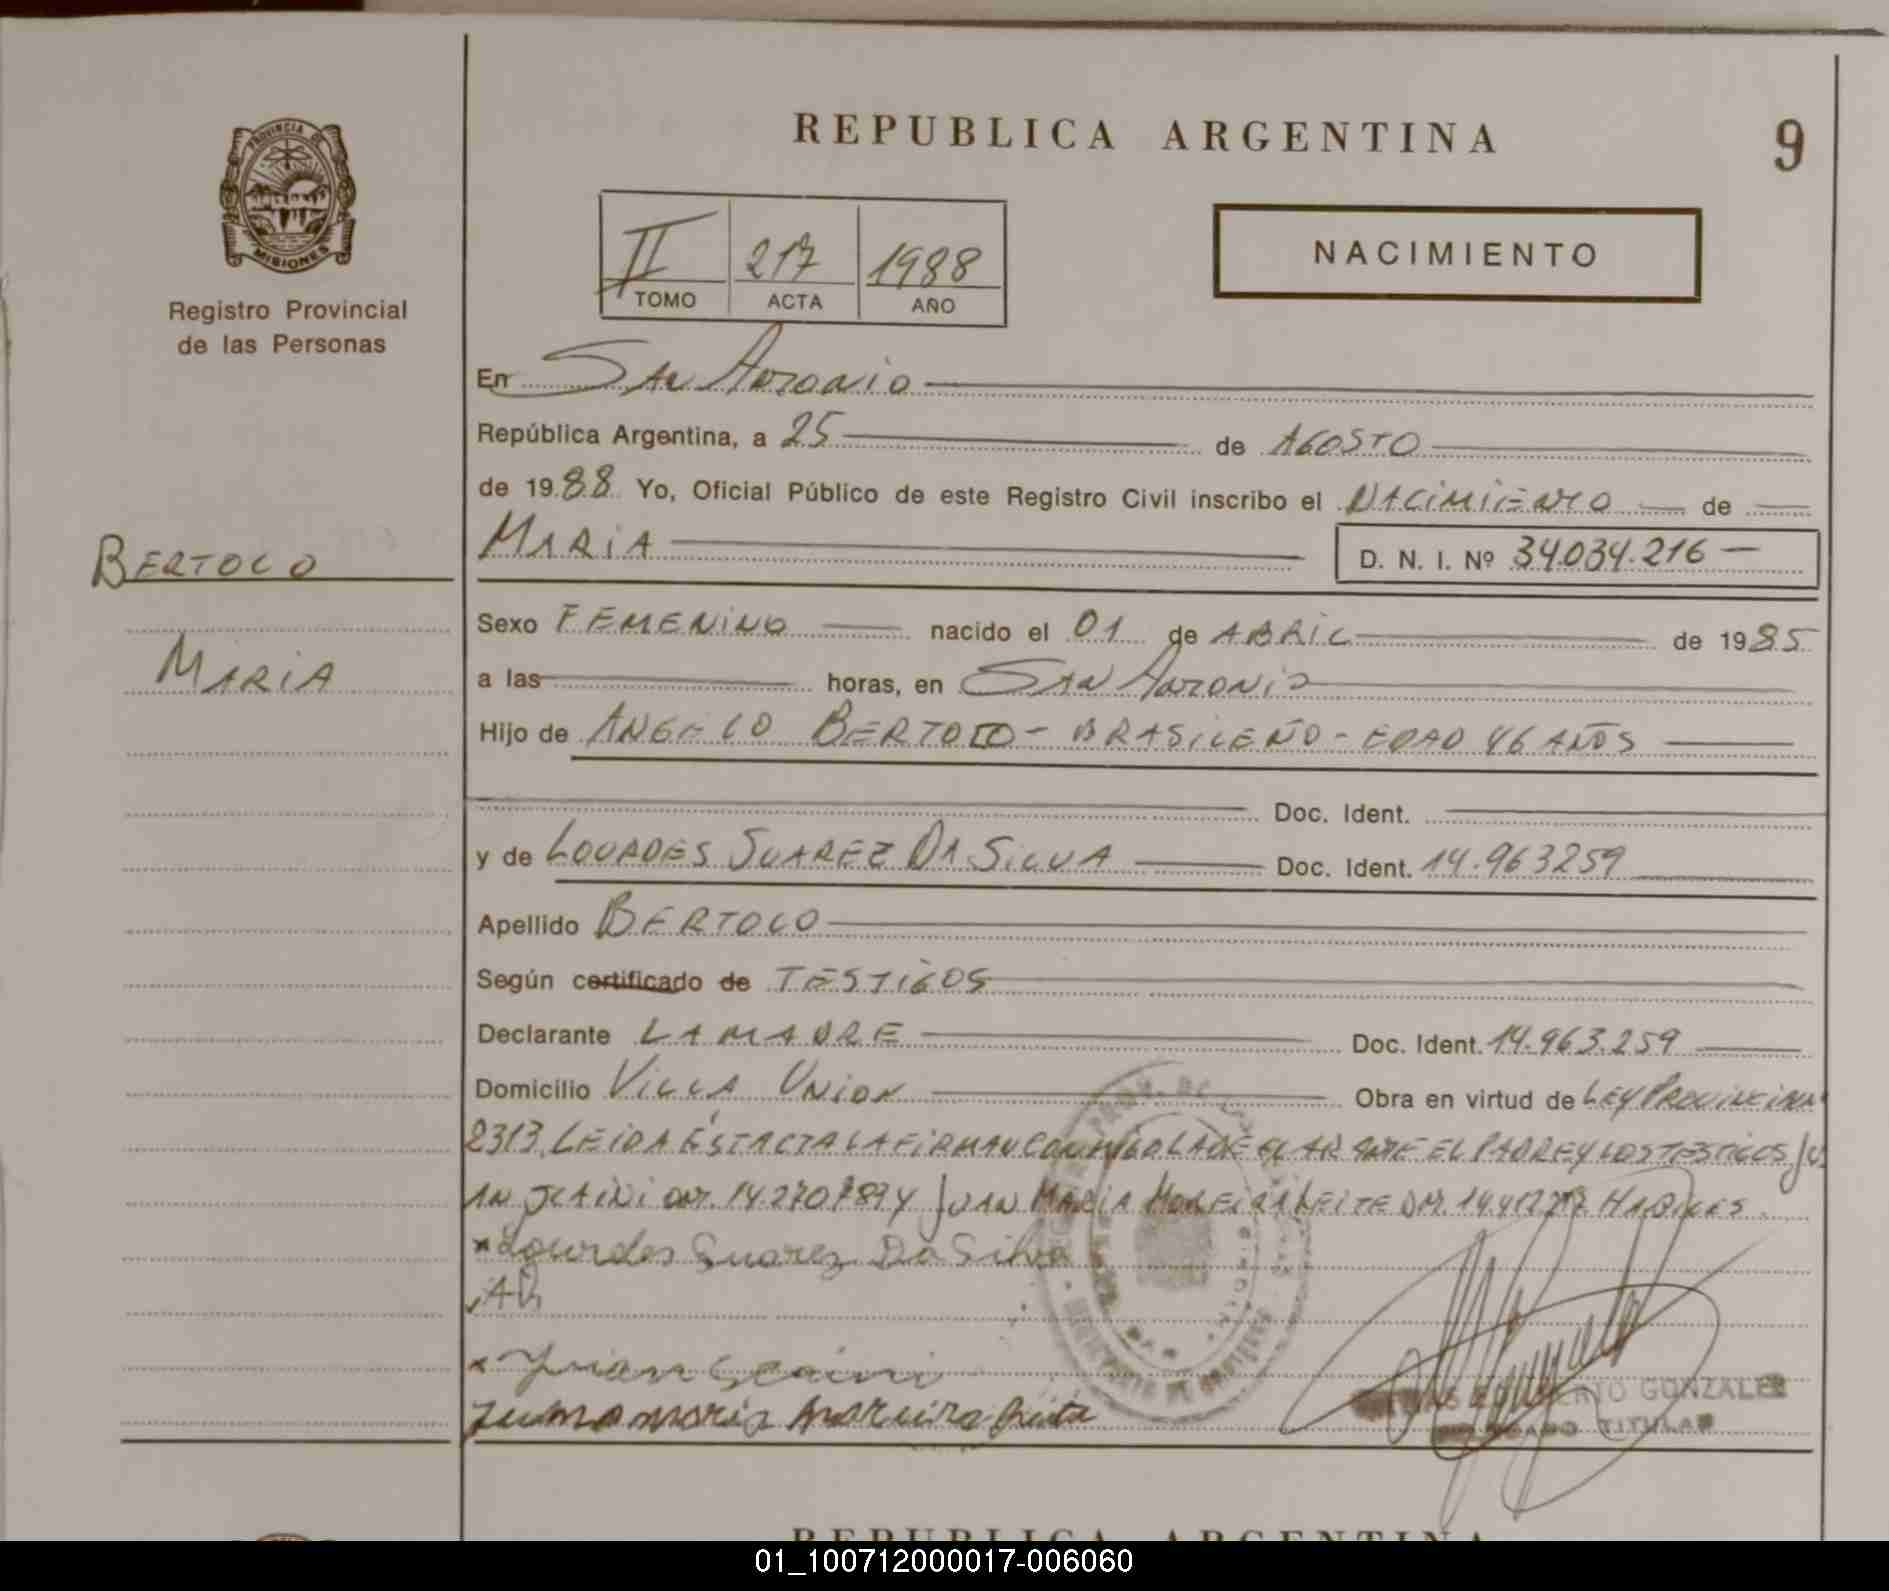 PROVINCIA DE
MISIONES
Registro Provincial
de las Personas
BERTOLO
MARIA
REPUBLICA ARGENTINA
9
II 217 1988
TOMO ACTA AÑO
NACIMIENTO
En SAN ANTONIO
República Argentina, a 25 de AGOSTO
de 1988 Yo, Oficial Público de este Registro Civil inscribo el NACIMIENTO de
MARIA D. N. I. Nº 34.034.216
Sexo FEMENINO nacido el 01 de ABRIL de 1985
a las horas, en SAN ANTONIO
Hijo de ANGELO BERTOLO - BRASILEÑO - EDAD 46 AÑOS
Doc. Ident.
y de LOURDES SUAREZ DA SILVA Doc. Ident. 14.963259
Apellido BERTOLO
Según certificado de TESTIGOS
Declarante LA MADRE Doc. Ident. 14.963.259
Domicilio VILLA UNION Obra en virtud de LEY PROVINCIAL
2313. LEIDA ESTA ACTA LA FIRMAN CONMIGO LA DECLARANTE EL PADRE Y LOS TESTIGOS JU
AN 14.270789 Y JUAN MARIA MOREIRA LEITE HABILES
Lourdes Suares Da Silva
AB
Juan
GONZALEZ
TITULAR
REPUBLICA ARGENTINA
01_100712000017-006060